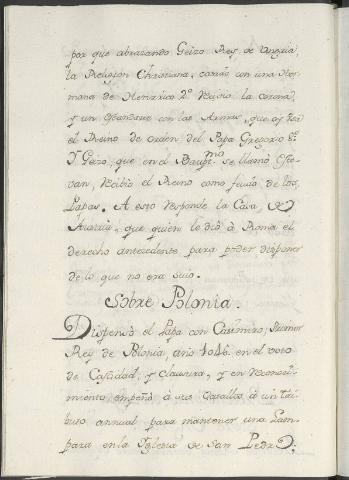 por que abrazando Geizo Rey de Ungria,
la Religion Christiana, casado con una Her-
mana de Henrico 2º recivio la corona,
y un Estandarte con las Armas, que oy trae
el Reino de orden del Papa Gregorio 5º
Y Geizo, que en el Baupt.mo se llamó Este-
van, recibio el Reino como feudo de los
Papas. A esto responde la Casa, de
Austria, que quien le dió á Roma el
derecho antecedente para poder disponer
de lo que no era suio.
Sobre Polonia.
Dispensó el Papa con Casimiro, Primer
Rey de Polonia, año 1046. en el voto
de Castidad, y clausura, y en reconoci-
miento, empeñó á sus Vasallos á un tri-
buto annual para mantener una Lam-
para en la Iglesia de San Pedro;